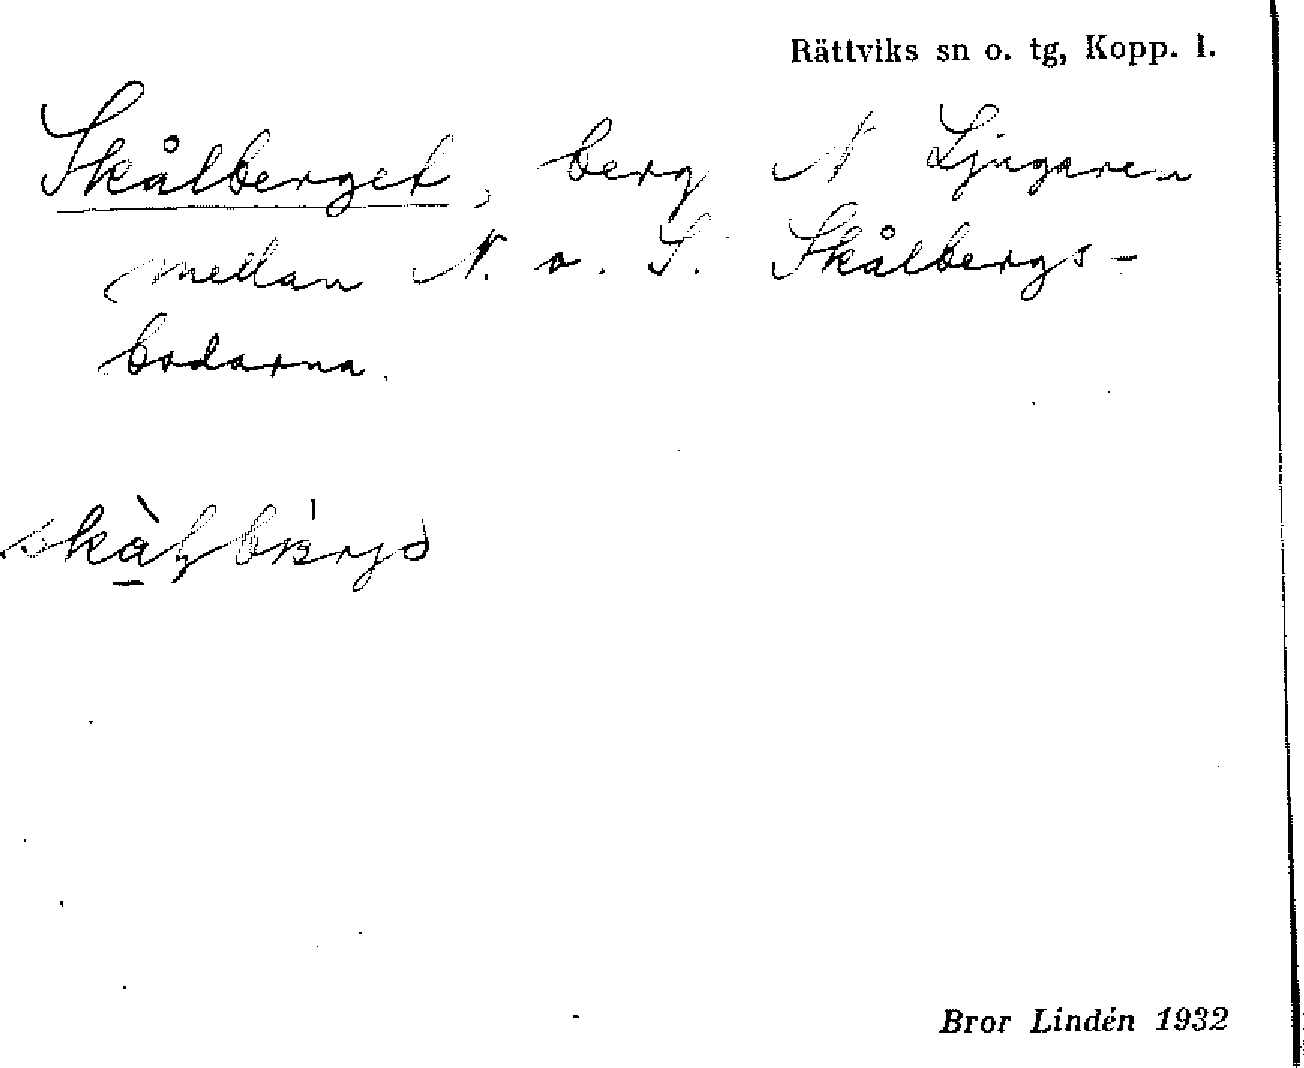 Rättviks sn o. tg, Kopp. l.
Skålberget, berg N Ljugaren
mellan N. o. S. Skålbergs-
bodarna.
Bror Lindén 1932